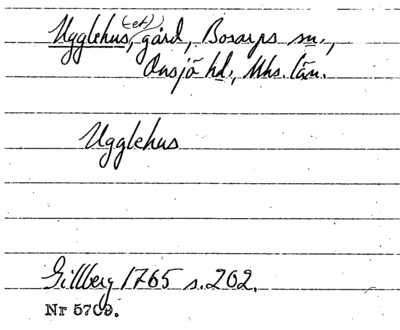 Ugglehus, (-et) gård, Bosarps sn.,
Onsjö hd., Mhs. län.
Ugglehus
Gillberg 1765 s.202.
Nr 5709.